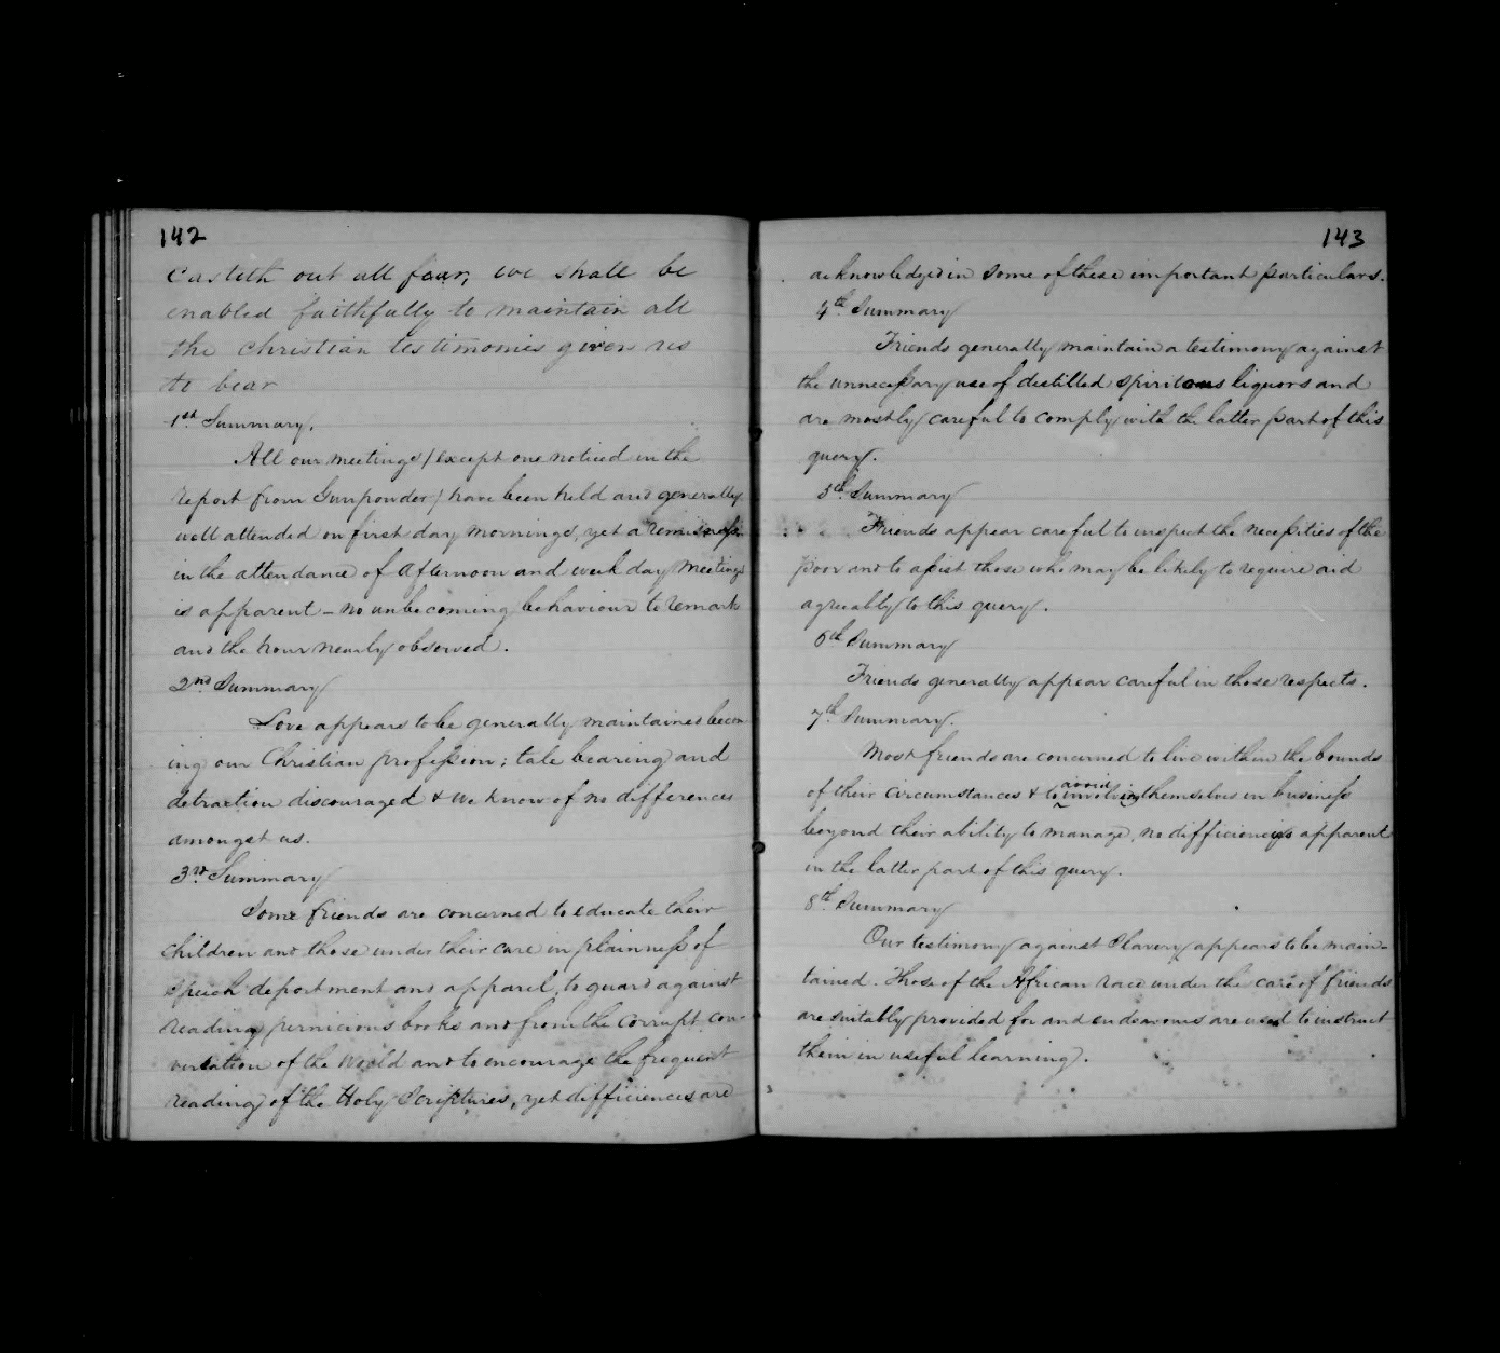 142
casteth out all fear, we shall be
enabled faithfully to maintain all
the Christian testimonies given us
to bear
1st Summary.
All our meetings (except one noticed in the
report from Gunpowder) have been held and generally
well attended on first day mornings, yet a remissness
in the attendance of afternoon and week day meetings
is apparent – no unbecoming behaviour to remark
and the hour nearly observed.
2nd Summary
Love appears to be generally maintained becom
ing our Christian profession; tale bearing and
detraction discouraged & we know of no differences
amongst us.
3rd Summary
Some friends are concerned to educate their
children and those under their care in plainness of
speech deportment and apparel, to guard against
reading pernicious books and from the corrupt con-
versation of the world and to encourage the frequent
reading of the Holy Scriptures, yet difficiences are
143
acknowledged in some of these important particulars.
4th Summary
Friends generally maintain a testimony against
the unnecessary use of destilled spiritous liquors and
are mostly careful to comply with the latter part of this
query.
5th Summary
Friends appear careful to inspect the necessities of the
poor and to assist those who may be likely to require aid
agreeably to this query.
6th Summary
Friends generally appear careful in those respects.
7th Summary.
Most friends are concerned to live within the bounds
of their circumstances & to avoid involving themselves in business
beyond their ability to manage, no difficiencies apparent
in the latter part of this query.
8th Summary
Our testimony against Slavery appears to be main-
tained. Those of the African race under the care of friends
are suitably provided for and endeavours are used to instruct
them in useful learning.